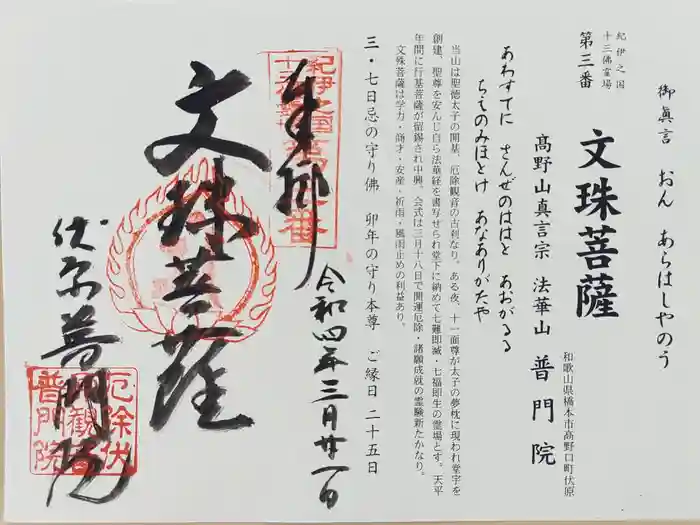 御眞言　おん　あらはしやのう
紀伊之国
十三佛霊場
第三番
文珠菩薩
和歌山県橋本市高野口町伏原
高野山真言宗　法華山　普門院
あわすてに　さんぜのははと　あおがるる
ちえのみほとけ　あなありがたや
当山は聖徳太子の開基、厄除観音の古刹なり。ある夜、十一面尊が太子の夢枕に現われ堂宇を
創建、聖尊を安んじ自ら法華経を書写せられ堂下に納めて七難即滅・七福即生の霊場とす。天平
年間に行基菩薩が留錫され中興。会式は三月十八日で開運厄除・諸願成就の霊験新たかなり。
文殊菩薩は学力・商才・安産・祈雨・風雨止めの利益あり。
三・七日忌の守り佛　卯年の守り本尊　ご縁日 二十五日
奉拝
紀伊之国
令和四年三月廿一日
文珠菩薩
伏原普門院
厄除伏
普門院